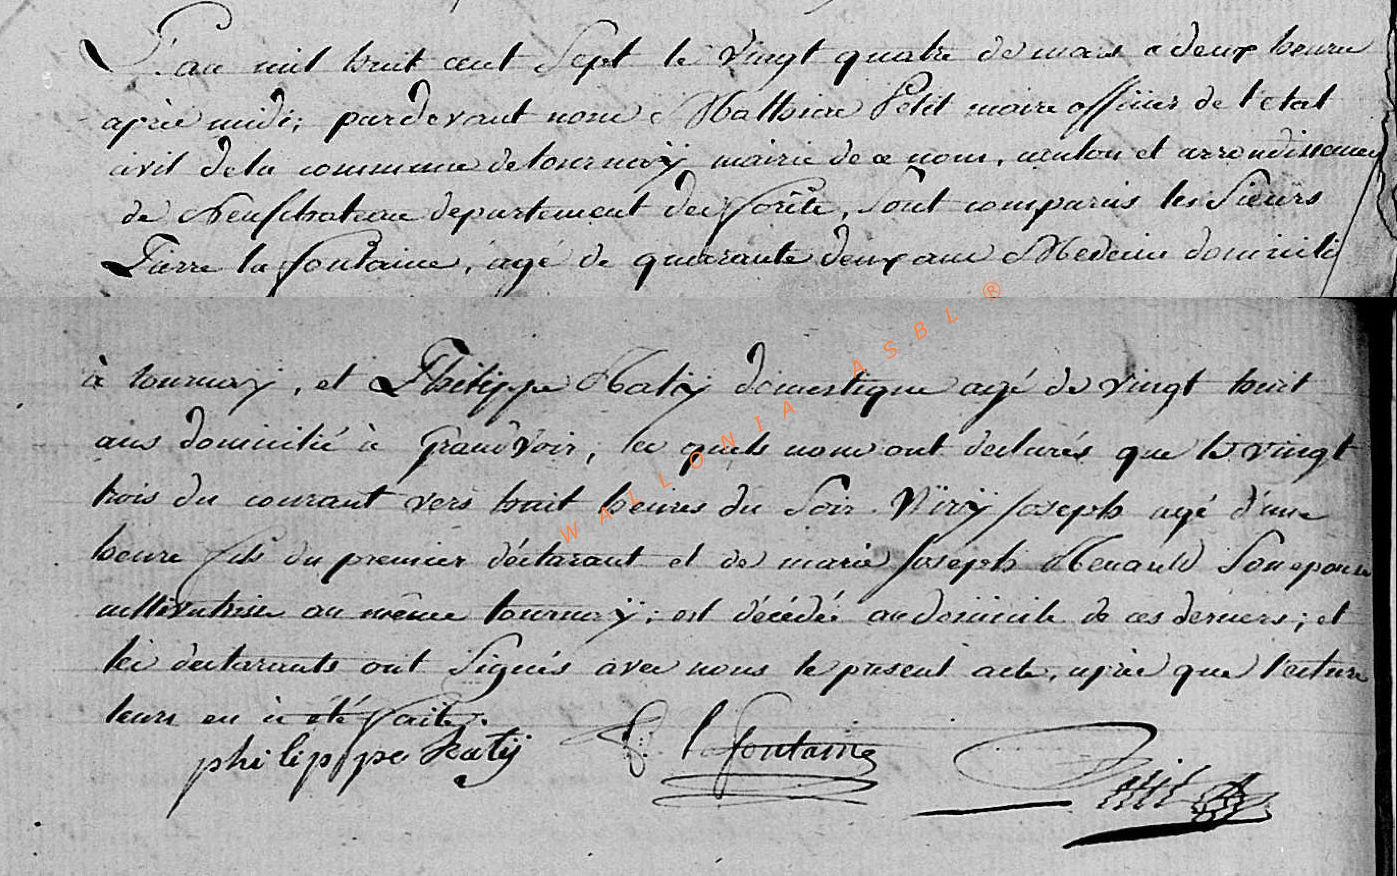 L'an mil huit cent sept le vingt quatre de mars a deux heure
après midi; pardevant nous Mathieu Petit maire officier de l'etat
civil de la commune de tournaÿ mairie de ce nom, canton et arrondissement
de Neufchateau departement des forêts, Sont comparus les Sieurs
Pierre la fontaine, agé de quarante deux ans Medecin domicilié
à tournaÿ, et Philippe Katÿ domestique agé de vingt huit
ans domicilié à GrandVoir, les quels nous ont declarés que le vingt
trois du courant vers huit heures du Soir Joseph agé d'une
heure fils du premier déclarant et de marie Joseph Renauld Son epouse
au même tournaÿ; est décédé au domicile de ces derniers; et
les declarants ont Signés avec nous le present acte, après que lecture
leurs en à été faite.
philippe Katÿ P. lafontaine Petit
WALLONIA ASBL ®